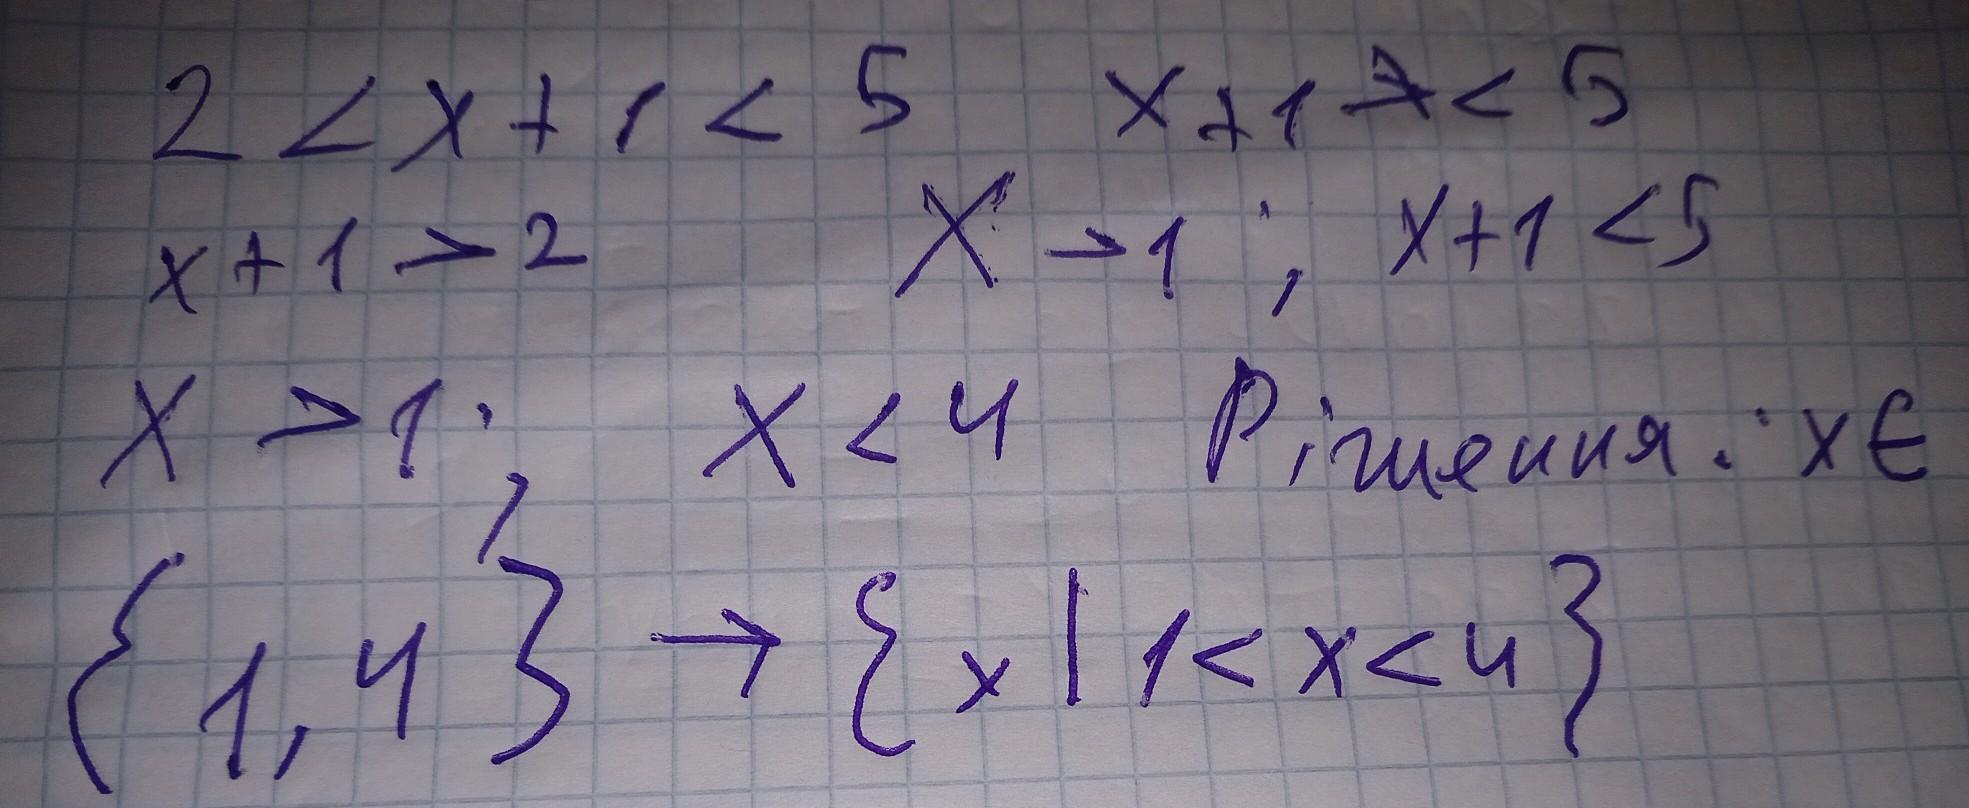 2 < x + 1 < 5 x+1 < 5
x + 1 > 2 X > 1 ; x+1 < 5
X > 1 ; X < 4 Рішення : x Є
{ 1, 4 } → { x | 1 < x < 4 }